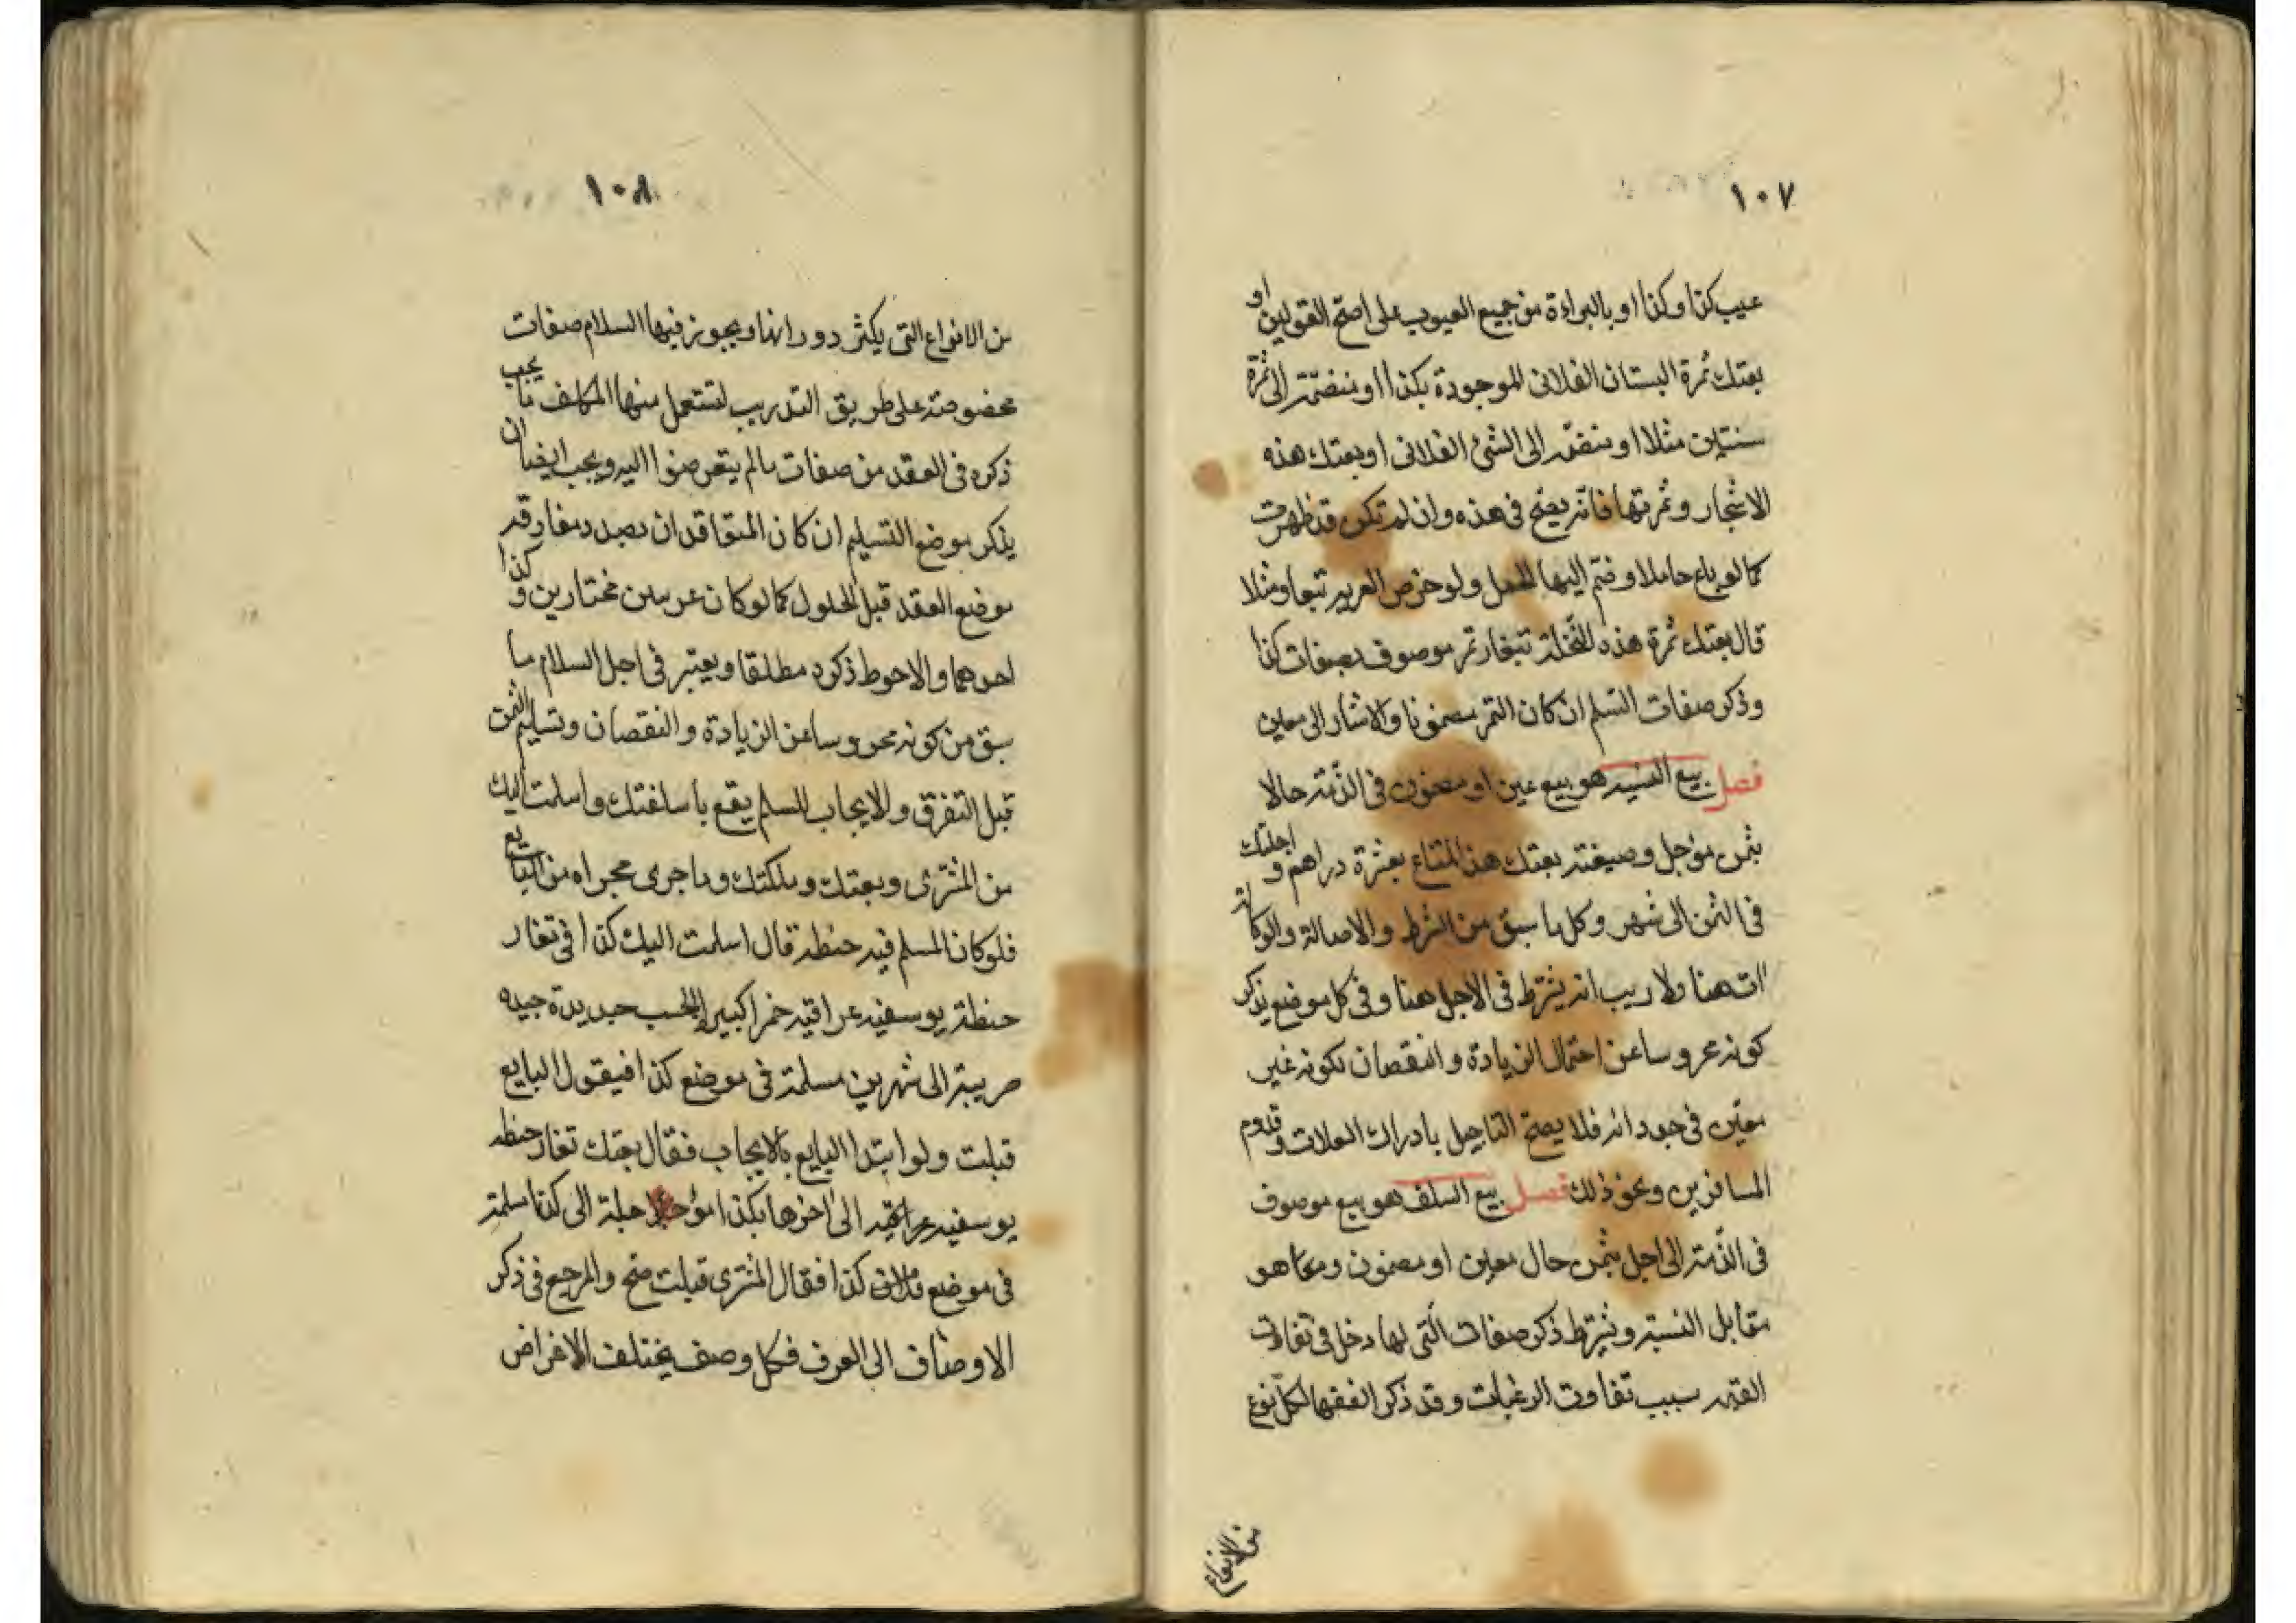 ١٠٧
عيب كذا وكذا او بالبراءة من جميع العيوب على اصح القولين او
بعتك ثمرة البستان الفلانى الموجودة بكذا او منضمة الى ثمرة
سنتين مثلا او منضمة الى الشئ الفلانى او بعتك هذه
الاشجار وثمرتها فانه يصح فى هذه وان لم تكن قد ظهرت
كما لو باع حاملا وضم اليها الحمل ولو خرص العرية تبعا ومثلا
قال بعتك ثمرة هذه النخلة تبغار تمر موصوف بصفات كذا
وذكر صفات السلم ان كان التمر مضمونا والا شار الى معين
فصل بيع النسيه هو بيع عين او مضمون فى الذمة حالا
بثمن مؤجل وصيغته بعتك هذا المتاع بعشرة دراهم و اجلتك
فى الثمن الى شهر وكل ما سبق من الشرط والاصالة والوكالة
ات هنا ولا ريب انه يشترط فى الاجل هنا وفى كل موضع يذكر
كونه محروسا عن احتمال الزيادة والنقصان لكونه غير
معين فى حد ذاته فلا يصح التاجيل بادراك الغلات وقدوم
المسافرين ونحو ذلك فصل بيع السلف هو بيع موصوف
فى الذمة الى اجل بثمن حال معين او مضمون وهو
مقابل النسية ويشترط ذكر صفات التى لها دخل فى تفاوت
القيمه بسبب تفاوت الرغبات وقد ذكر الفقها لكل نوع
من الانواع
١٠٨
من الانواع التى يكثر دورانها ويجوز فيها السلام صفات
مخصوصة على طريق التدريب لتستعمل منها المكلف ما يجب
ذكره فى العقد من صفات ما لم يتعرضوا اليه ويجب ايضا ان
يذكر موضع التسليم ان كان المتعاقدان بصدد مفارقة
موضع العقد قبل الحلول كما لو كان مختارين و كذا
والاحوط ذكره مطلقا ويعتبر فى اجل السلام ما
سبق من كونه محروسا عن الزيادة والنقصان وتسليم الثمن
قبل التفرق والايجاب للسلم يقع باسلفتك واسلمت اليك
من المشترى وبعتك وملكتك وما جرى مجراه من البايع
فلو كان المسلم فيه حنطة قال اسلمت اليك كذا فى تغار
حنطة يوسفيه عراقيه حمرا كبير الحب جديدة جيده
صريبة الى شهرين مسلمة فى موضع كذا فيقول البايع
قبلت ولو ابتدا البايع بالايجاب فقال بعتك تغار حنطه
يوسفيه عراقيه الى اخرها بكذا مؤجلا اجله الى كذا مسلمة
فى موضع كذا فقال المشترى قبلت صح والمرجع فى ذكر
الاوصاف الى العرف فكل وصف يختلف الاغراض